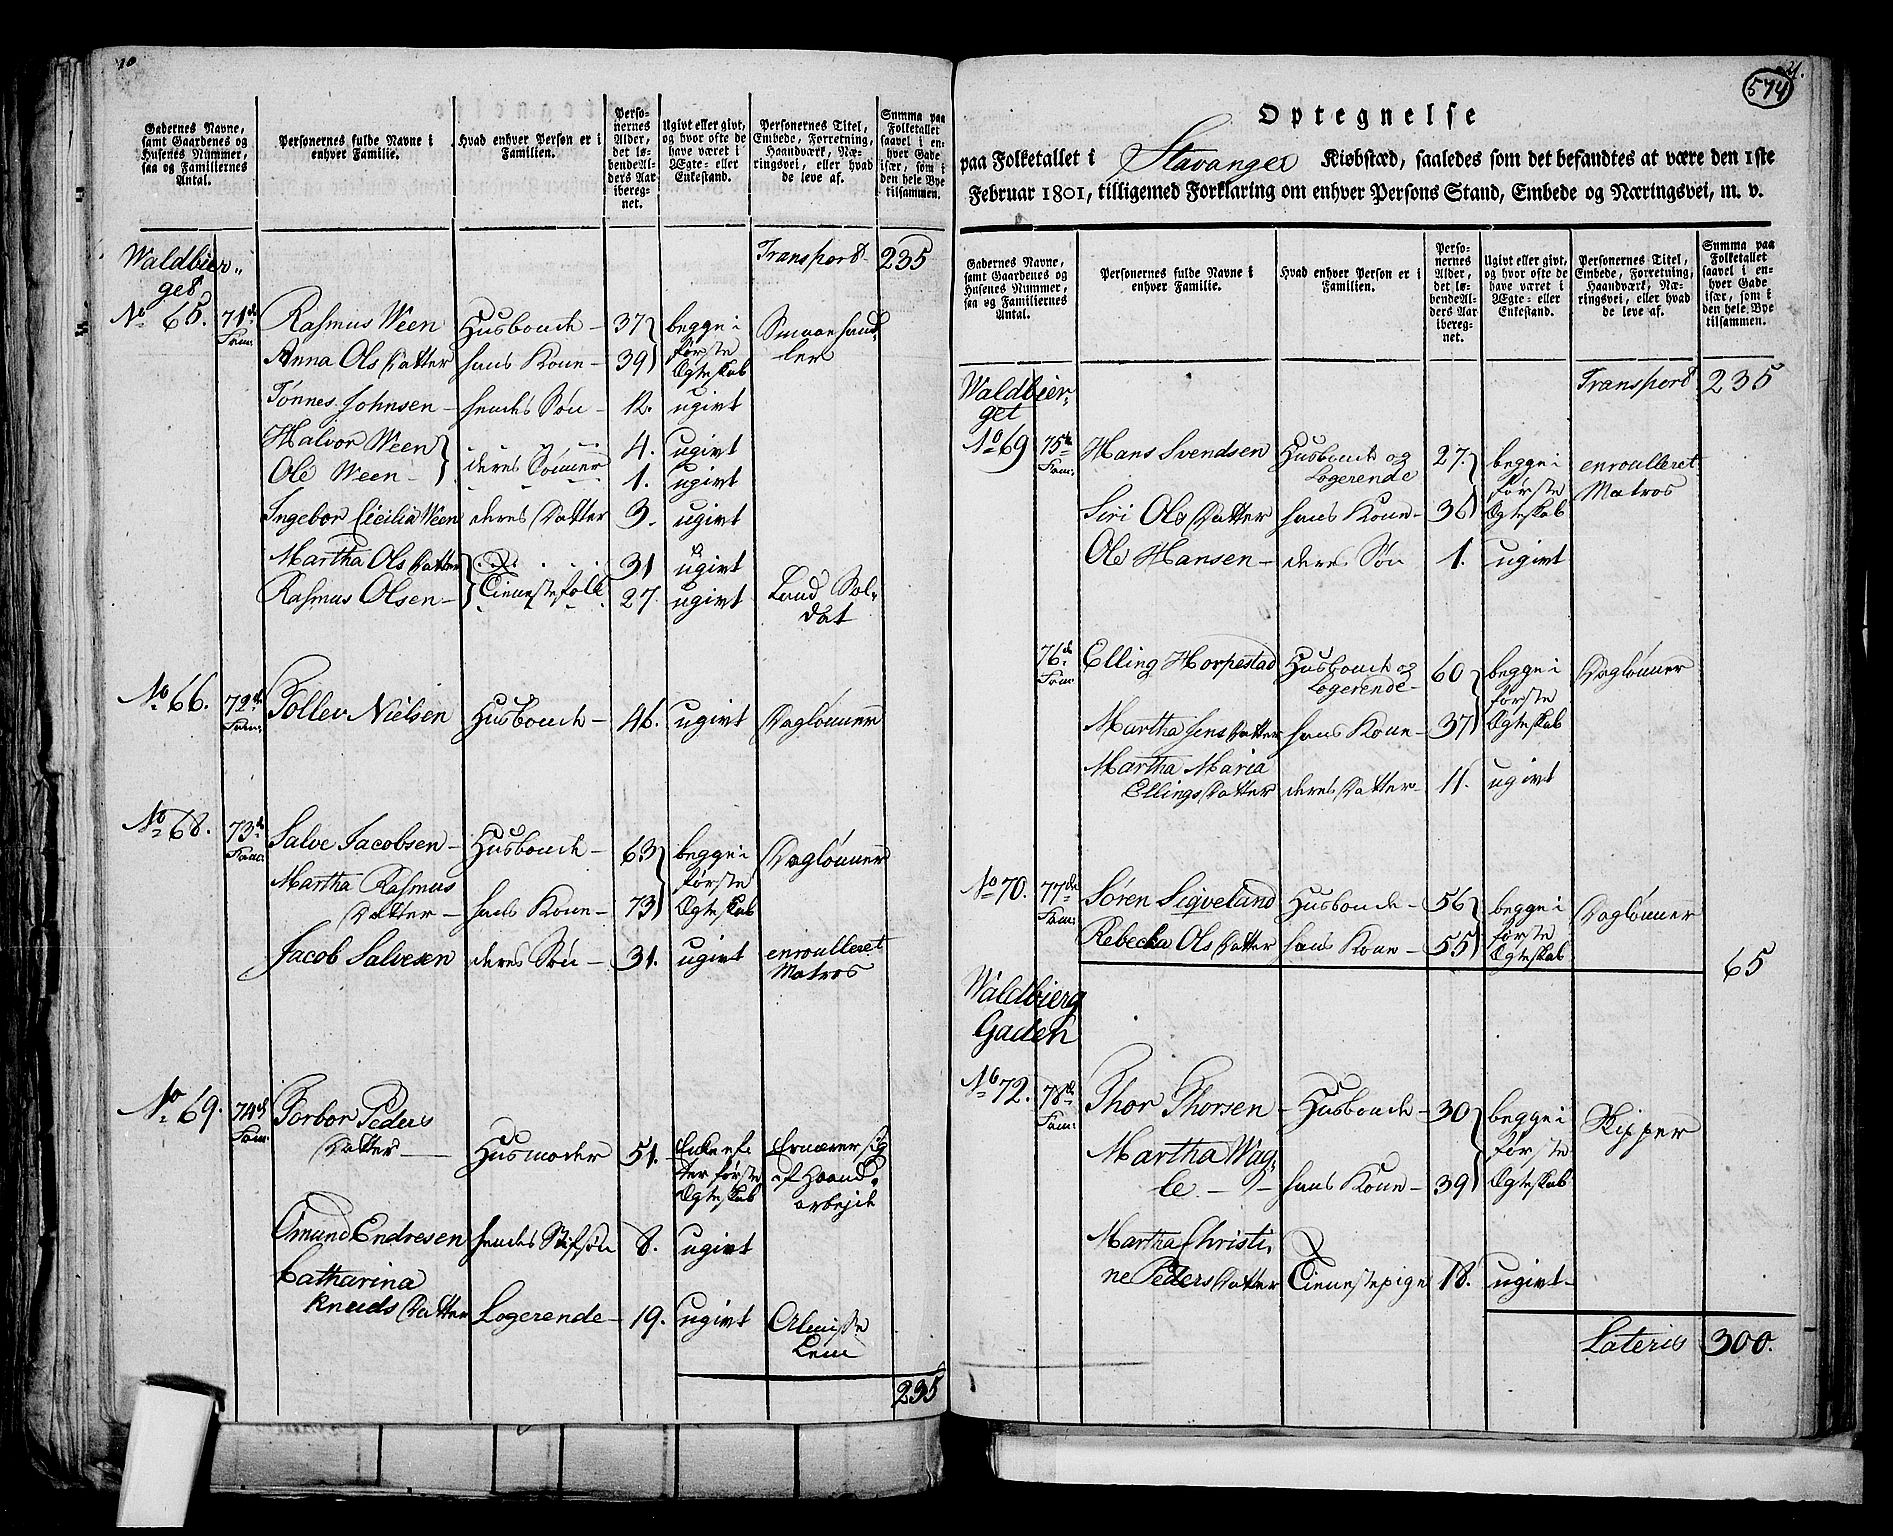 10
Gadernes Navne,
samt Gaardenes og
Husenes Nummer,
saa og Familiernes
Antal.
Personernes fulde Navne i
enhver Familie.
Hvad enhver Person er i
Familien.
Perso-
nernes
Alder,
det lø-
bende Al-
ders Aar
ibereg-
net.
Ugivt eller givt,
og hvor ofte de
have været i
Ægte- eller
Enkestand.
Personernes Titel,
Embede, Forretning,
Haandværk, Næ-
ringsvei, eller hvad
de leve af.
Summa paa
Folketallet
saavel i en-
hver Gade
især, som i
den hele Bye
tilsammen.
Waldbier-
get
Transport 235
No 65. 71de Fam: Rasmus Ween Husbonde 37 begge i Smaaehand-
Anna Ols Datter hans Kone 39 første ler
Ægteskab
Tønnes Johnsen hendes Søn 12. ugivt
Halvor Ween 4. ugivt
Ole Ween deres Sønner 1. ugivt
Ingebor Cicilia Ween deres Datter 3. ugivt
Martha Ols Datter 31 ugivt
Rasmus Olsen Tienestefolk 27 ugivt Land Sol-
dat
No 66. 72de Fam: Tollev Nielsen Husbonde 46. ugivt Daglønner
No 68. 73de Fam: Salve Jacobsen Husbonde 63 begge i Daglønner
Martha Rasmus første
Datter hans Kone 73 Ægteskab
Jacob Salvesen deres Søn 31. ugivt enroulleret
Matros
No 69. 74de Fam: Torbor Peders
Datter Husmoder 51. Enke ef- Ernærer sig
ter første af Haand-
Ægteskab arbejde
Omund Endresen hendes Stifsøn 8. ugivt
Catharina
Knuds Datter Logerende 19. ugivt Almisse
Lem
235
21.
574
Optegnelse
paa Folketallet i Stavanger Kiøbstæd, saaledes som det befandtes at være den 1ste
Februar 1801, tilligemed Forklaring om enhver Persons Stand, Embede og Næringsvei, m. v.
Gadernes Navne,
samt Gaardenes og
Husenes Nummer,
saa og Familiernes
Antal.
Personernes fulde Navne i
enhver Familie.
Hvad enhver Person er i
Familien.
Perso-
nernes
Alder,
det lø-
bende Al-
ders Aar
ibereg-
net.
Ugivt eller givt,
og hvor ofte de
have været i
Ægte- eller
Enkestand.
Personernes Titel,
Embede, Forretning,
Haandværk, Næ-
ringsvei, eller hvad
de leve af.
Summa paa
Folketallet
saavel i en-
hver Gade
især, som i
den hele Bye
tilsammen.
Waldbier-
get
Transport 235
No 69 75de Fam: Hans Svendsen Husbonde og 27. begge i enroulleret
Logerende første Matros
Siri Ols Datter hans Kone 36 Ægteskab
Ole Hansen deres Søn 1. ugivt
76de Fam: Elling Horpestad Husbonde og 60 begge i Daglønner
Logerende første
Martha Jens Datter hans Kone 37 Ægteskab
Martha Maria
Ellings Datter deres Datter 11. ugivt
No 70. 77de Fam: Søren Siqveland Husbonde 56 begge i Daglønner
Rebecka Ols Datter hans Kone 55 første
Ægteskab
65
Waldbierg
Gaden
No 72. 78de Fam: Thor Thorsen Husbonde 30 begge i Skipper
Martha Wag- første
le hans Kone 39 Ægteskab
Martha Christi-
ne Peders Datter Tienestepige 18. ugivt
Lateris 300.